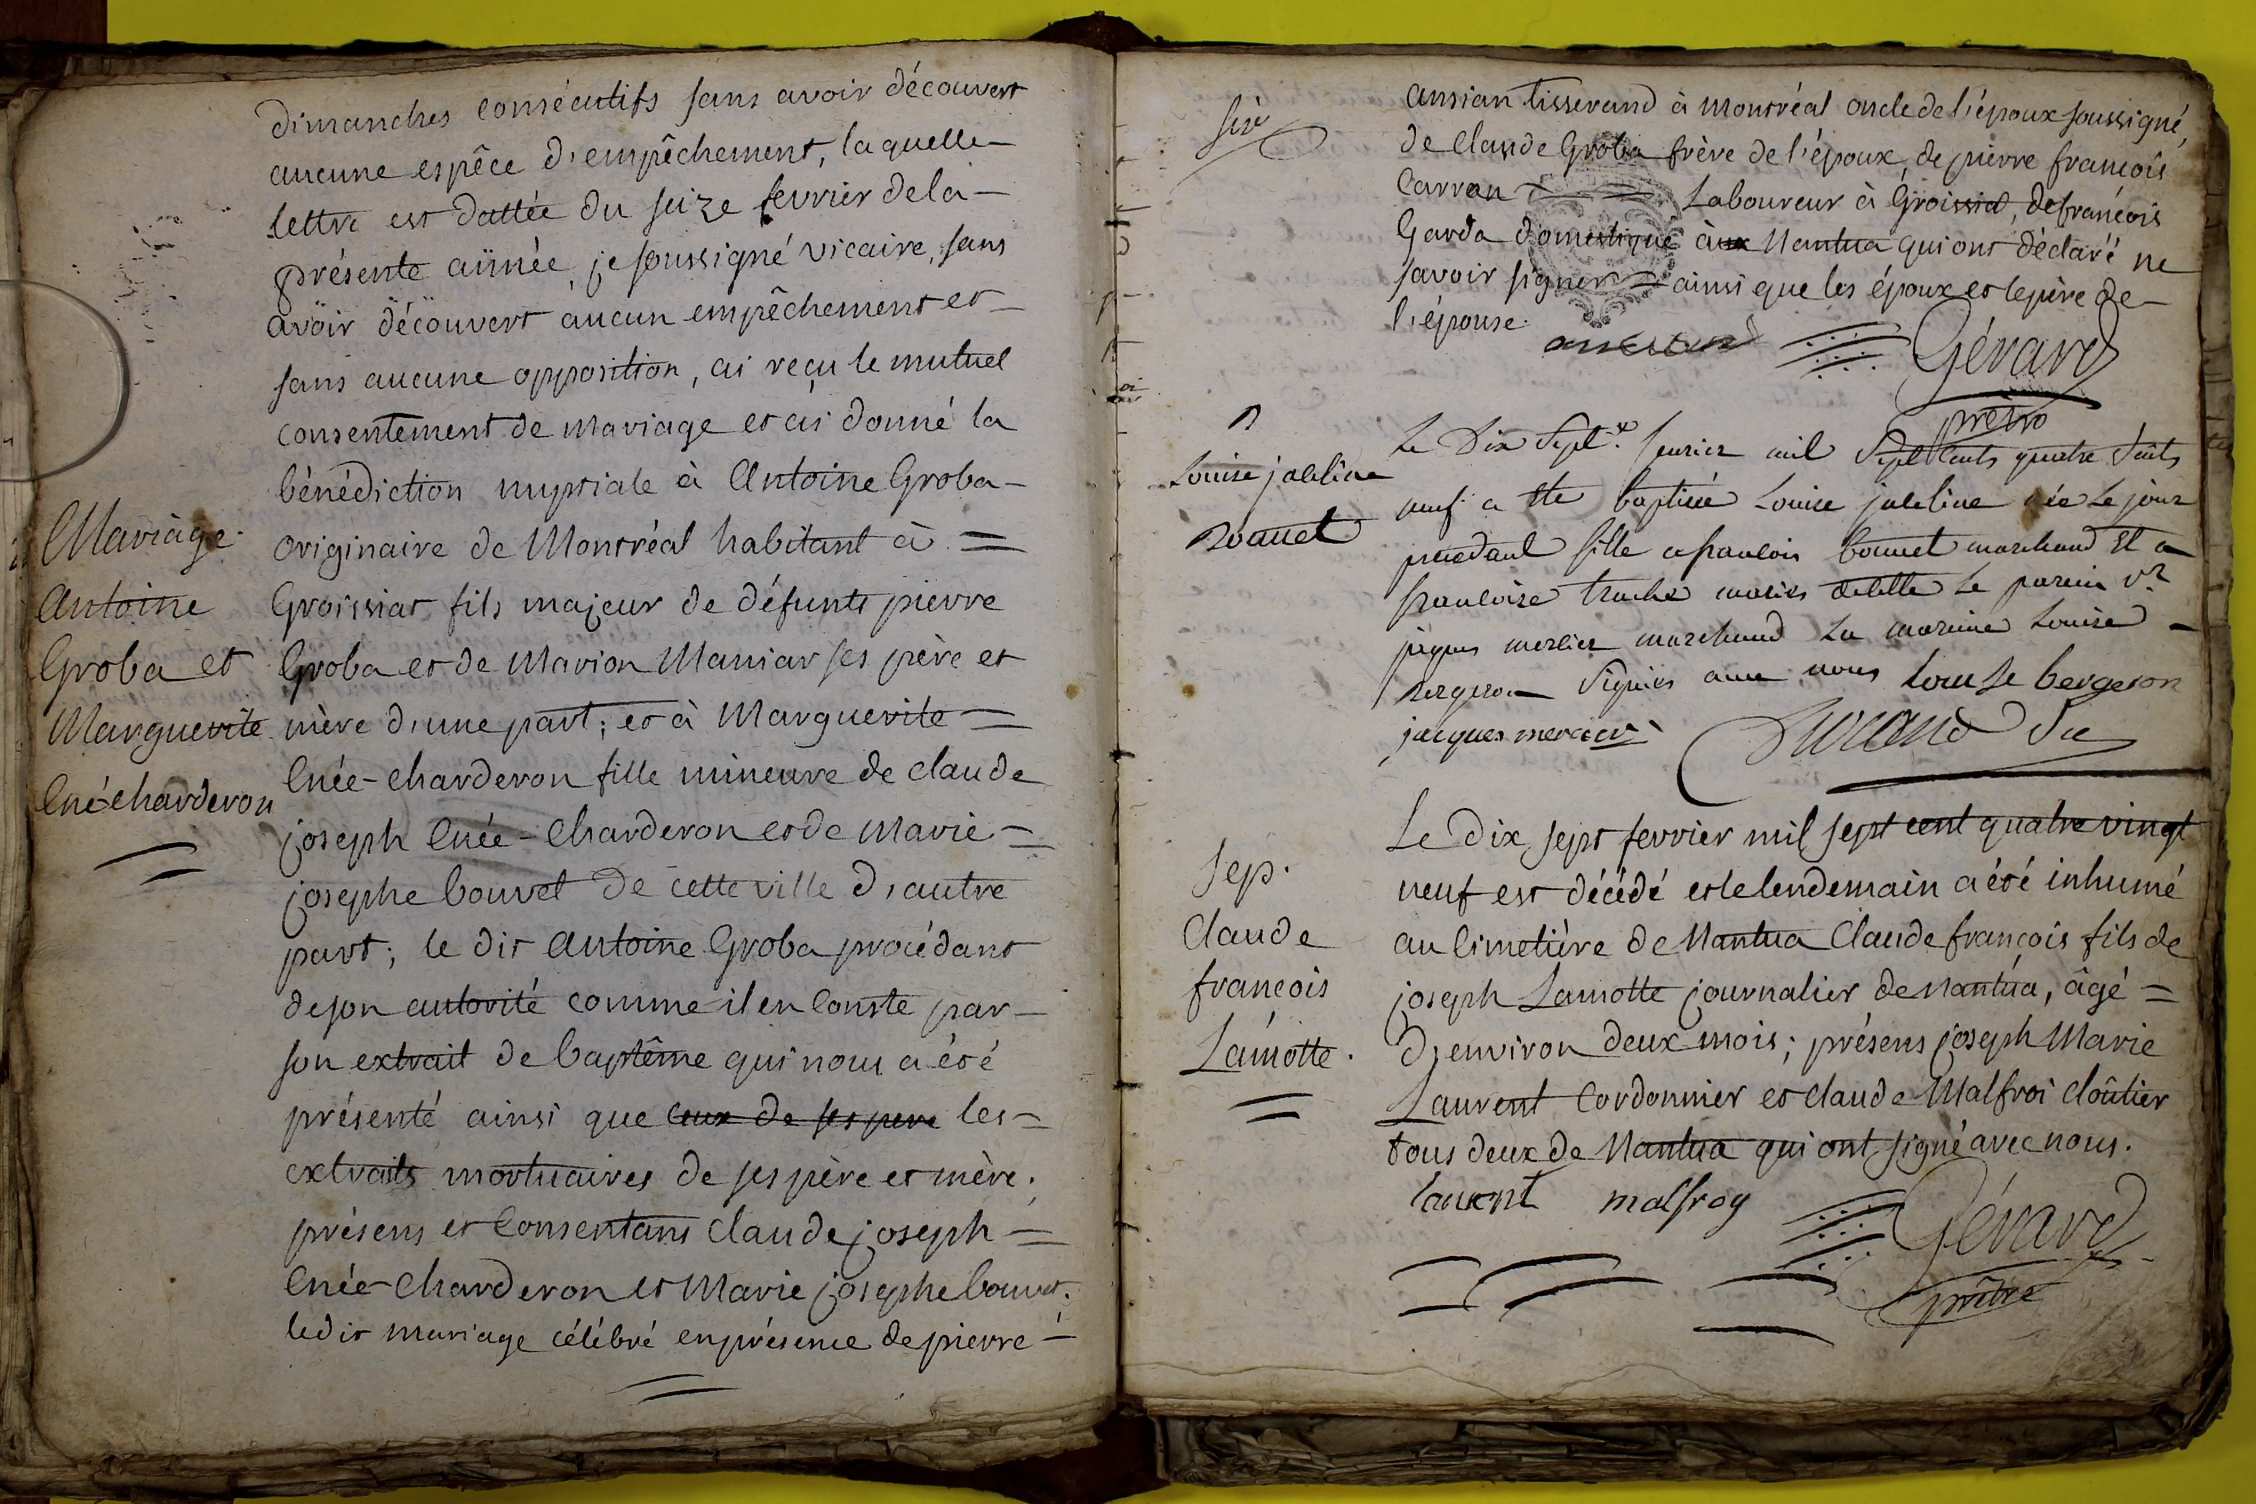 dimanches consécutifs sans avoir découvert
aucune espêce d'empêchement, laquelle
lettre est dattée du seize fevrier de la
présente année, je soussigné vicaire, sans
avoir découvert aucun empêchement et
sans aucune opposition, ai reçu le mutuel
consentement de mariage et ai donné la
bénédiction nuptiale à Antoine Groba
originaire de Montréal habitant à =
Groissiat fils majeur de défunts pierre
Groba et de Marion Maniar ses père et
mère d'une part; et à Marguerite =
Cnée-charderon fille mineure de claude
joseph Cnée-Charderon et de Marie =
josephe bouvet de cette ville d'autre
part; le dit Antoine Groba procédant
de son autorité comme il en Conste par
son extrait de baptême qui nous a été
présenté ainsi que ceux de ses pere les =
extraits mortuaires de ses père et mère.
présens et Consentans Claude joseph =
Cnée-Charderon et Marie josephe bouvet.
ledit mariage célébré en présence de pierre
Mariage
Antoine
Groba et
Marguerite
Cnécharderon
ansian tisserand à Montréal oncle de l'époux soussigné,
de Claude Groba frère de l'époux, de pierre françois
Carron Laboureur à Groissiat, de françois
Garda domestique à Nantua qui ont déclaré ne
savoir signer ainsi que les époux et le père de
l'épouse.
Gérard
prêtre
Louise jateline
Bonnet
Le Dix Sept.e feurier mil Sept Cents quatre Vints
neuf a Ete baptisée Louise jateline née Le jour
precedant fille a francois bonnet marchand Et a
francoise mariés Le parein Sr
jaques mercier marchand La mareine Louise
Bergeron Signiés avec nous Louise bergeron
jacques mercier Durand
Sep.
Claude
françois
Lamotte.
Le dix sept fevrier mil sept cent quatre vingt
neuf est décédé et le lendemain a été inhumé
au Cimetière de Nantua Claude françois fils de
joseph Lamotte journalier de Nantua, âgé =
d'environ deux mois; présens joseph Marie
Laurent Cordonnier et claude Malfroi Cloûtier
tous deux de Nantua qui ont signé avec nous.
laurent malfroy Gérard
prêtre